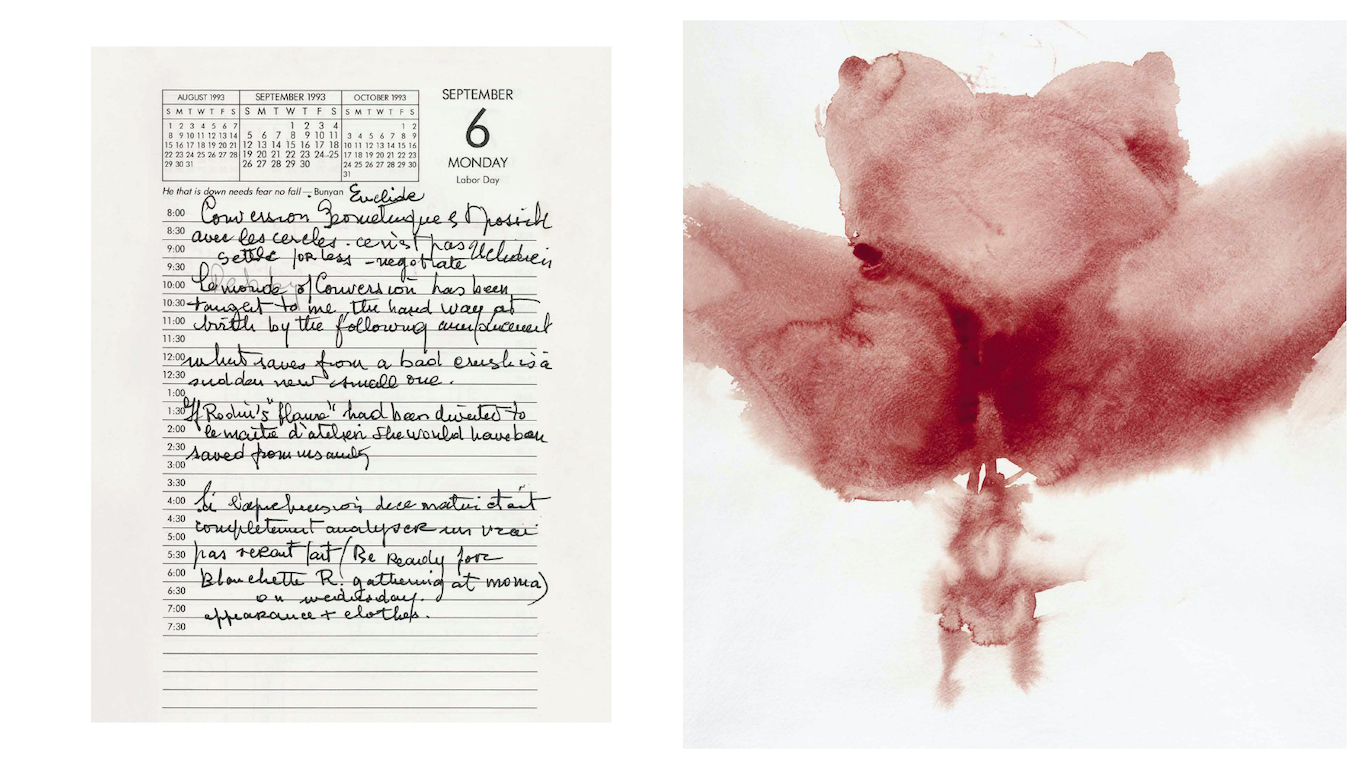 AUGUST 1993
S M T W T F S
1 2 3 4 5 6 7
8 9 10 11 12 13 14
15 16 17 18 19 20 21
22 23 24 25 26 27 28
29 30 31
SEPTEMBER 1993
S M T W T F S
1 2 3 4
5 6 7 8 9 10 11
12 13 14 15 16 17 18
19 20 21 22 23 24 25
26 27 28 29 30
OCTOBER 1993
S M T W T F S
1 2
3 4 5 6 7 8 9
10 11 12 13 14 15 16
17 18 19 20 21 22 23
24 25 26 27 28 29 30
31
SEPTEMBER
6
MONDAY
Labor Day
He that is down needs fear no fall — Bunyan
Euclide
8:00 Conversion
8:30 avec les cercles. ce n'est pas
9:00 settle for less - negotiate
9:30
10:00 Le monde of Conversion has been
10:30 taught to me, the hard way at
11:00 birth by the following
11:30
12:00 what saves from a bad crush is a
12:30 sudden new small one.
1:00
1:30 If Rodin's "flame" had been diverted to
2:00 le maître d'atelier she would have been
2:30 saved from insanity
3:00
3:30
4:00 Si l'aprehension de ce matin était
4:30 completement analyser un vrai
5:00
5:30 pas serait fait (Be Ready for
6:00 Blanchette R. gathering at moma)
6:30 on wednesday.
7:00 appearance + clothes.
7:30